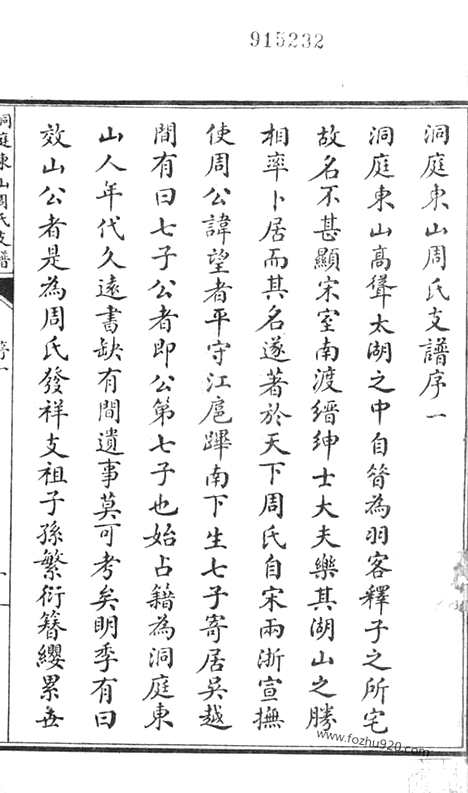 915232
洞庭東山周氏支譜序一
洞庭東山高聳太湖之中自昝為羽客釋子之所宅
故名不甚顯宋室南渡縉紳士大夫樂其湖山之勝
相率卜居而其名遂著於天下周氏自宋兩浙宣撫
使周公諱望者平守江扈蹕南下生七子寄居吳越
間有曰七子公者即公第七子也始占籍為洞庭東
山人年代久遠書缺有間遺事莫可考矣明季有曰
效山公者是為周氏發祥支祖子孫繁衍簪纓累世
洞庭東山周氏支譜
www.fozhu920.com